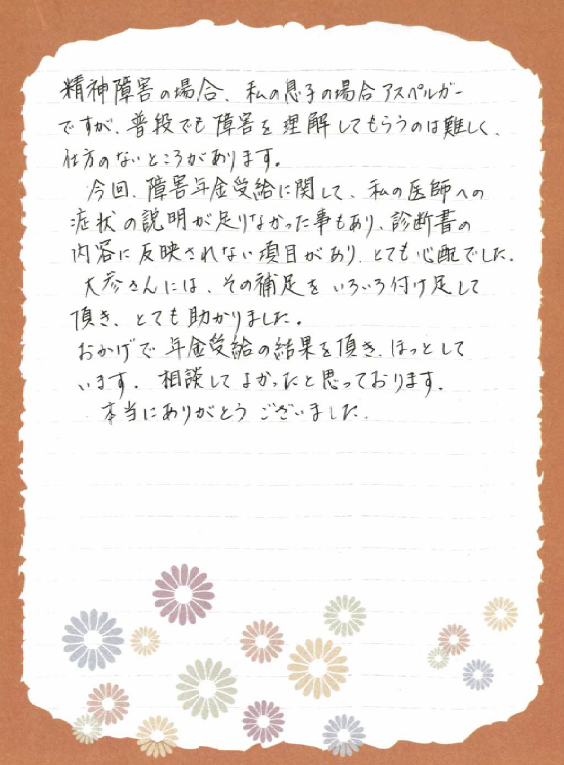 精神障害の場合、私の息子の場合アスペルガー
ですが、普段でも障害を理解してもらうのは難しく、
仕方のないところがあります。
今回、障害年金受給に関して、私の医師への
症状の説明が足りなかった事もあり、診断書の
内容に反映されない項目があり、とても心配でした。
大彦さんには、その補足をいろいろ付け足して
頂き、とても助かりました。
おかげで年金受給の結果を頂き、ほっとして
います。相談してよかったと思っております。
本当にありがとうございました。